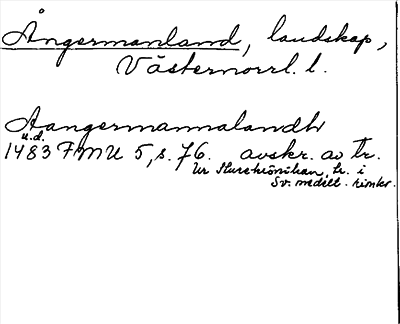 Ångermanland, landskap,
Västernorrl. l.
Aangermannalandh
u.d.
1483 FMU 5, s. 76. avskr. av tr.
ur Sturekrönikan, tr. i
Sv. medelt. rimkr.